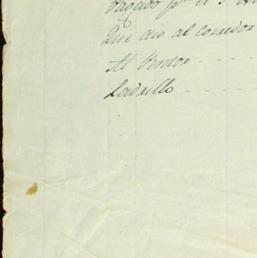 pagado pr. el S.
Que dio al comedor
Al Pintor
Ladrillo